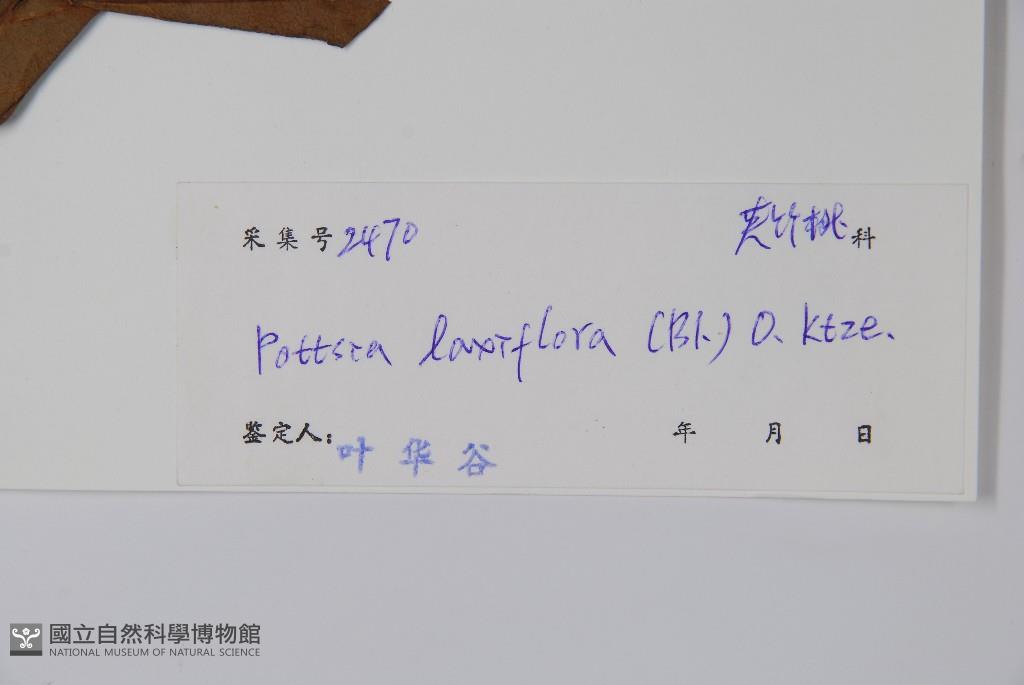 采集号 2470 夹竹桃科
Pottsia laxiflora (Bl.) O. Ktze.
鉴定人: 叶华谷 年 月 日
國立自然科學博物館
NATIONAL MUSEUM OF NATURAL SCIENCE